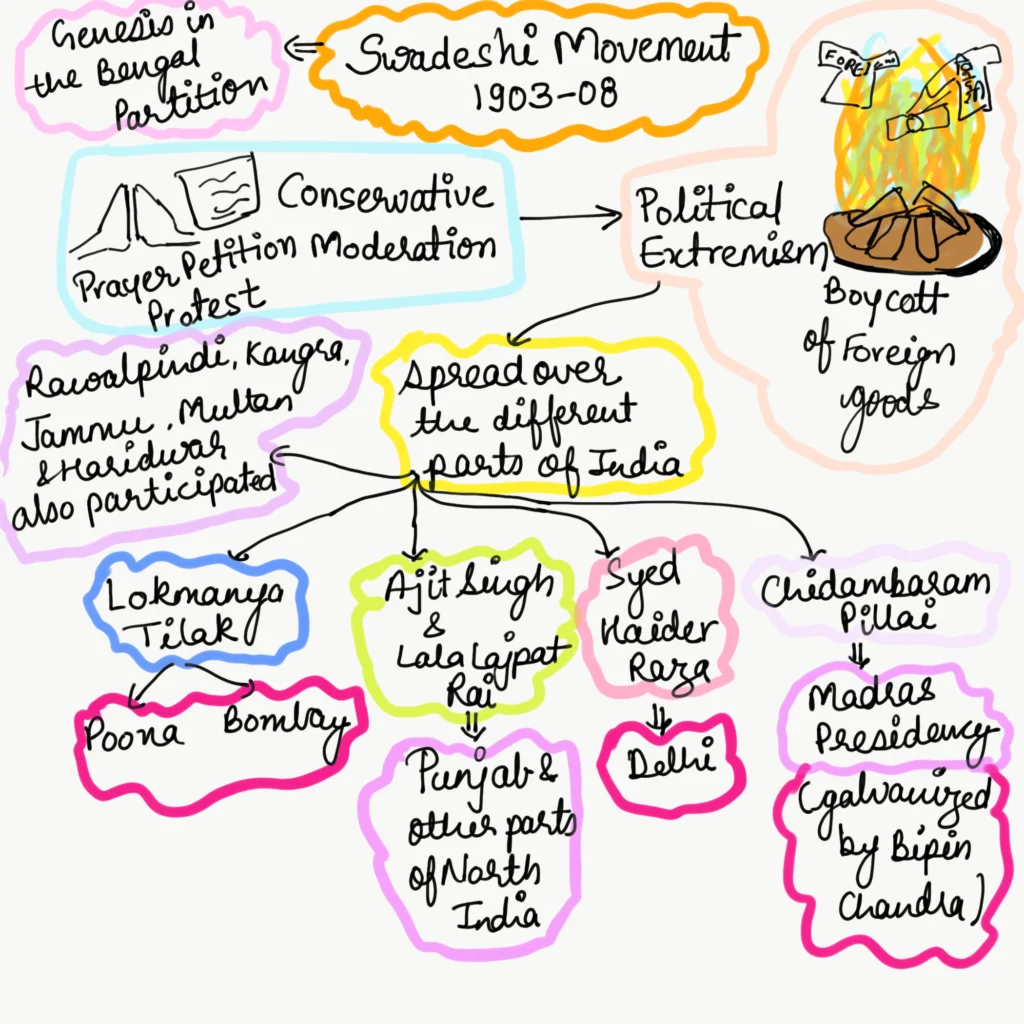 Genesis in
the Bengal
Partition
Swadeshi Movement
1903-08
Conservative
Prayer Petition Moderation
Protest
Political
Extremism
FOREIGN
Boycott
of Foreign
goods
Spread over
the different
parts of India
Rawalpindi, Kangra,
Jammu, Multan
& Haridwar
also participated
Lokmanya
Tilak
Poona Bombay
Ajit Singh
&
Lala Lajpat
Rai
Punjab &
other parts
of North
India
Syed
Haider
Raza
Delhi
Chidambaram
Pillai
Madras
Presidency
(galvanized
by Bipin
Chandra)